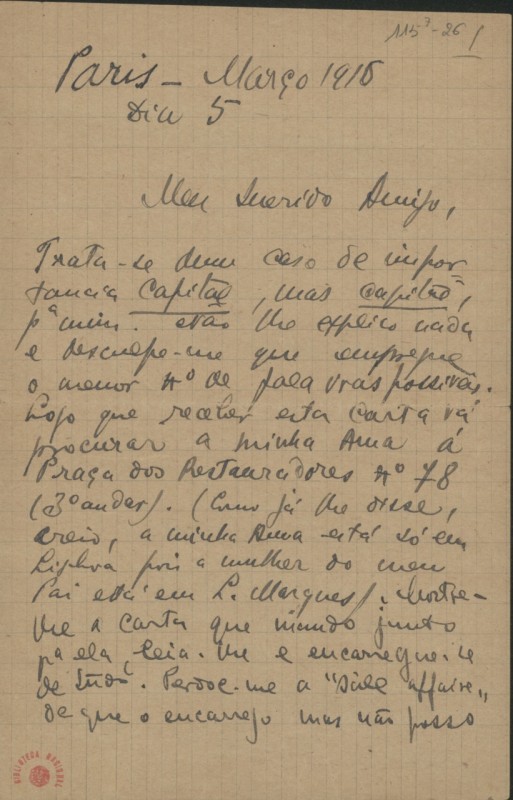 115⁷-26 1
Paris - Março 1916
Dia 5
Meu Querido Amigo,
Trata-se dum caso de impor=
tancia capital, mas capital,
pª mim. Não lhe explico nada
e desculpe-me que empregue
o menor nº de palavras possivas.
Logo que receber esta carta vá
procurar a minha Ama á
Praça dos Restauradores nº 78
(3º andar). (Como já lhe disse,
creio, a minha Ama está só em
Lisboa pois a mulher do meu
Pai está em L. Marques). Mostre-
lhe a carta que mando junto
pª ela, leia-lhe e encarregue-se
de tudo. Perdoe-me a "sale affaire"
de que o encarrego mas não posso
BIBLIOTECA NACIONAL